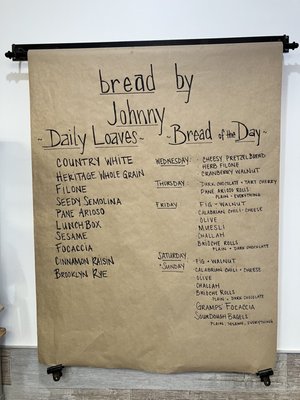 bread by
Johnny
~ Daily Loaves ~
COUNTRY WHITE
HERITAGE WHOLE GRAIN
FILONE
SEEDY SEMOLINA
PANE ARIOSO
LUNCH BOX
SESAME
FOCACCIA
CINNAMON RAISIN
BROOKLYN RYE
- Bread of the Day ~
WEDNESDAY: CHEESY PRETZEL BREAD
HERB FILONE
CRANBERRY WALNUT
THURSDAY: DARK CHOCOLATE + TART CHERRY
PANE ARIOSO ROLLS
- PLAIN + EVERYTHING
FRIDAY: FIG + WALNUT
CALABRIAN CHILI + CHEESE
OLIVE
MUESLI
CHALLAH
BRIOCHE ROLLS
- PLAIN + DARK CHOCOLATE
SATURDAY
SUNDAY: FIG + WALNUT
CALABRIAN CHILI + CHEESE
OLIVE
CHALLAH
BRIOCHE ROLLS
- PLAIN + DARK CHOCOLATE
GRAMPS' FOCACCIA
SOURDOUGH BAGELS
- PLAIN, SESAME, EVERYTHING